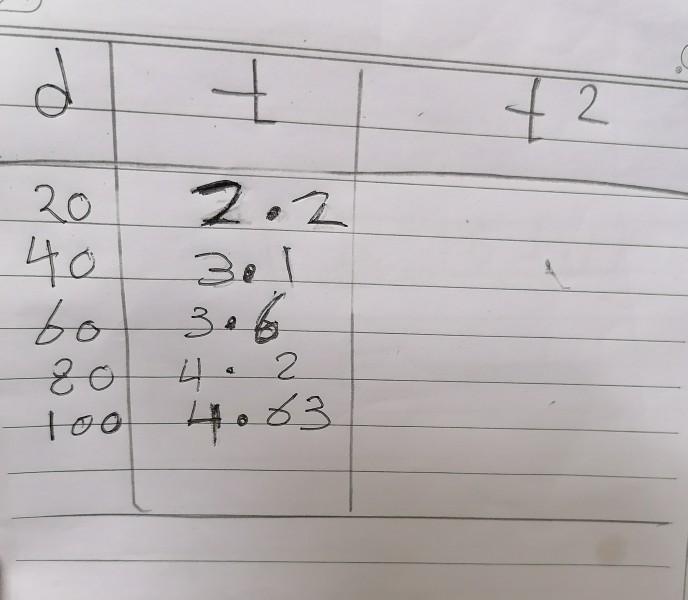 d t t 2
20 2.2
40 3.1
60 3.6
80 4.2
100 4.63